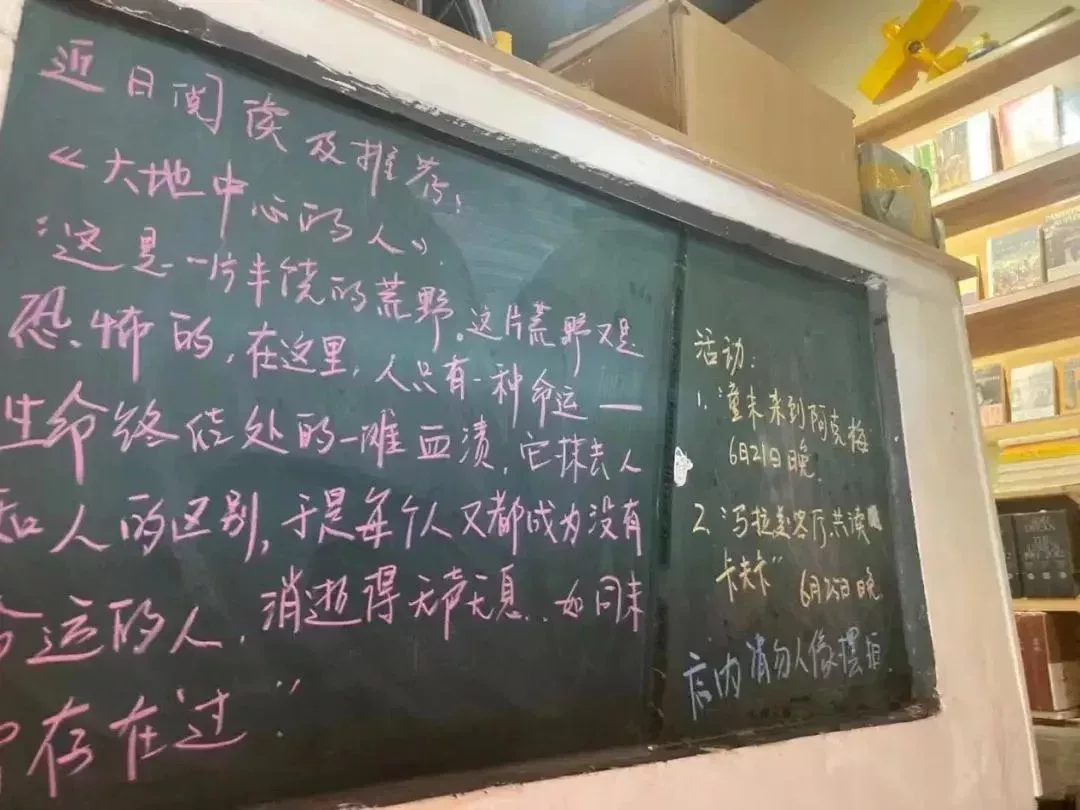 近日阅读及推荐:
《大地中心的人》.
"这是一片半饶的荒野。这片荒野又是
恐怖的,在这里,人只有一种命运——
生命终结处的一滩血渍,它抹去人
和人的区别,于是每个人又都成为没有
命运的人,消逝得无声无息..如同未
存在过"
活动:
1. 童末来到阿克梅
6月21日晚.
2. 客厅.共读
卡夫卡" 6月25日晚
店内请勿人像摆拍.